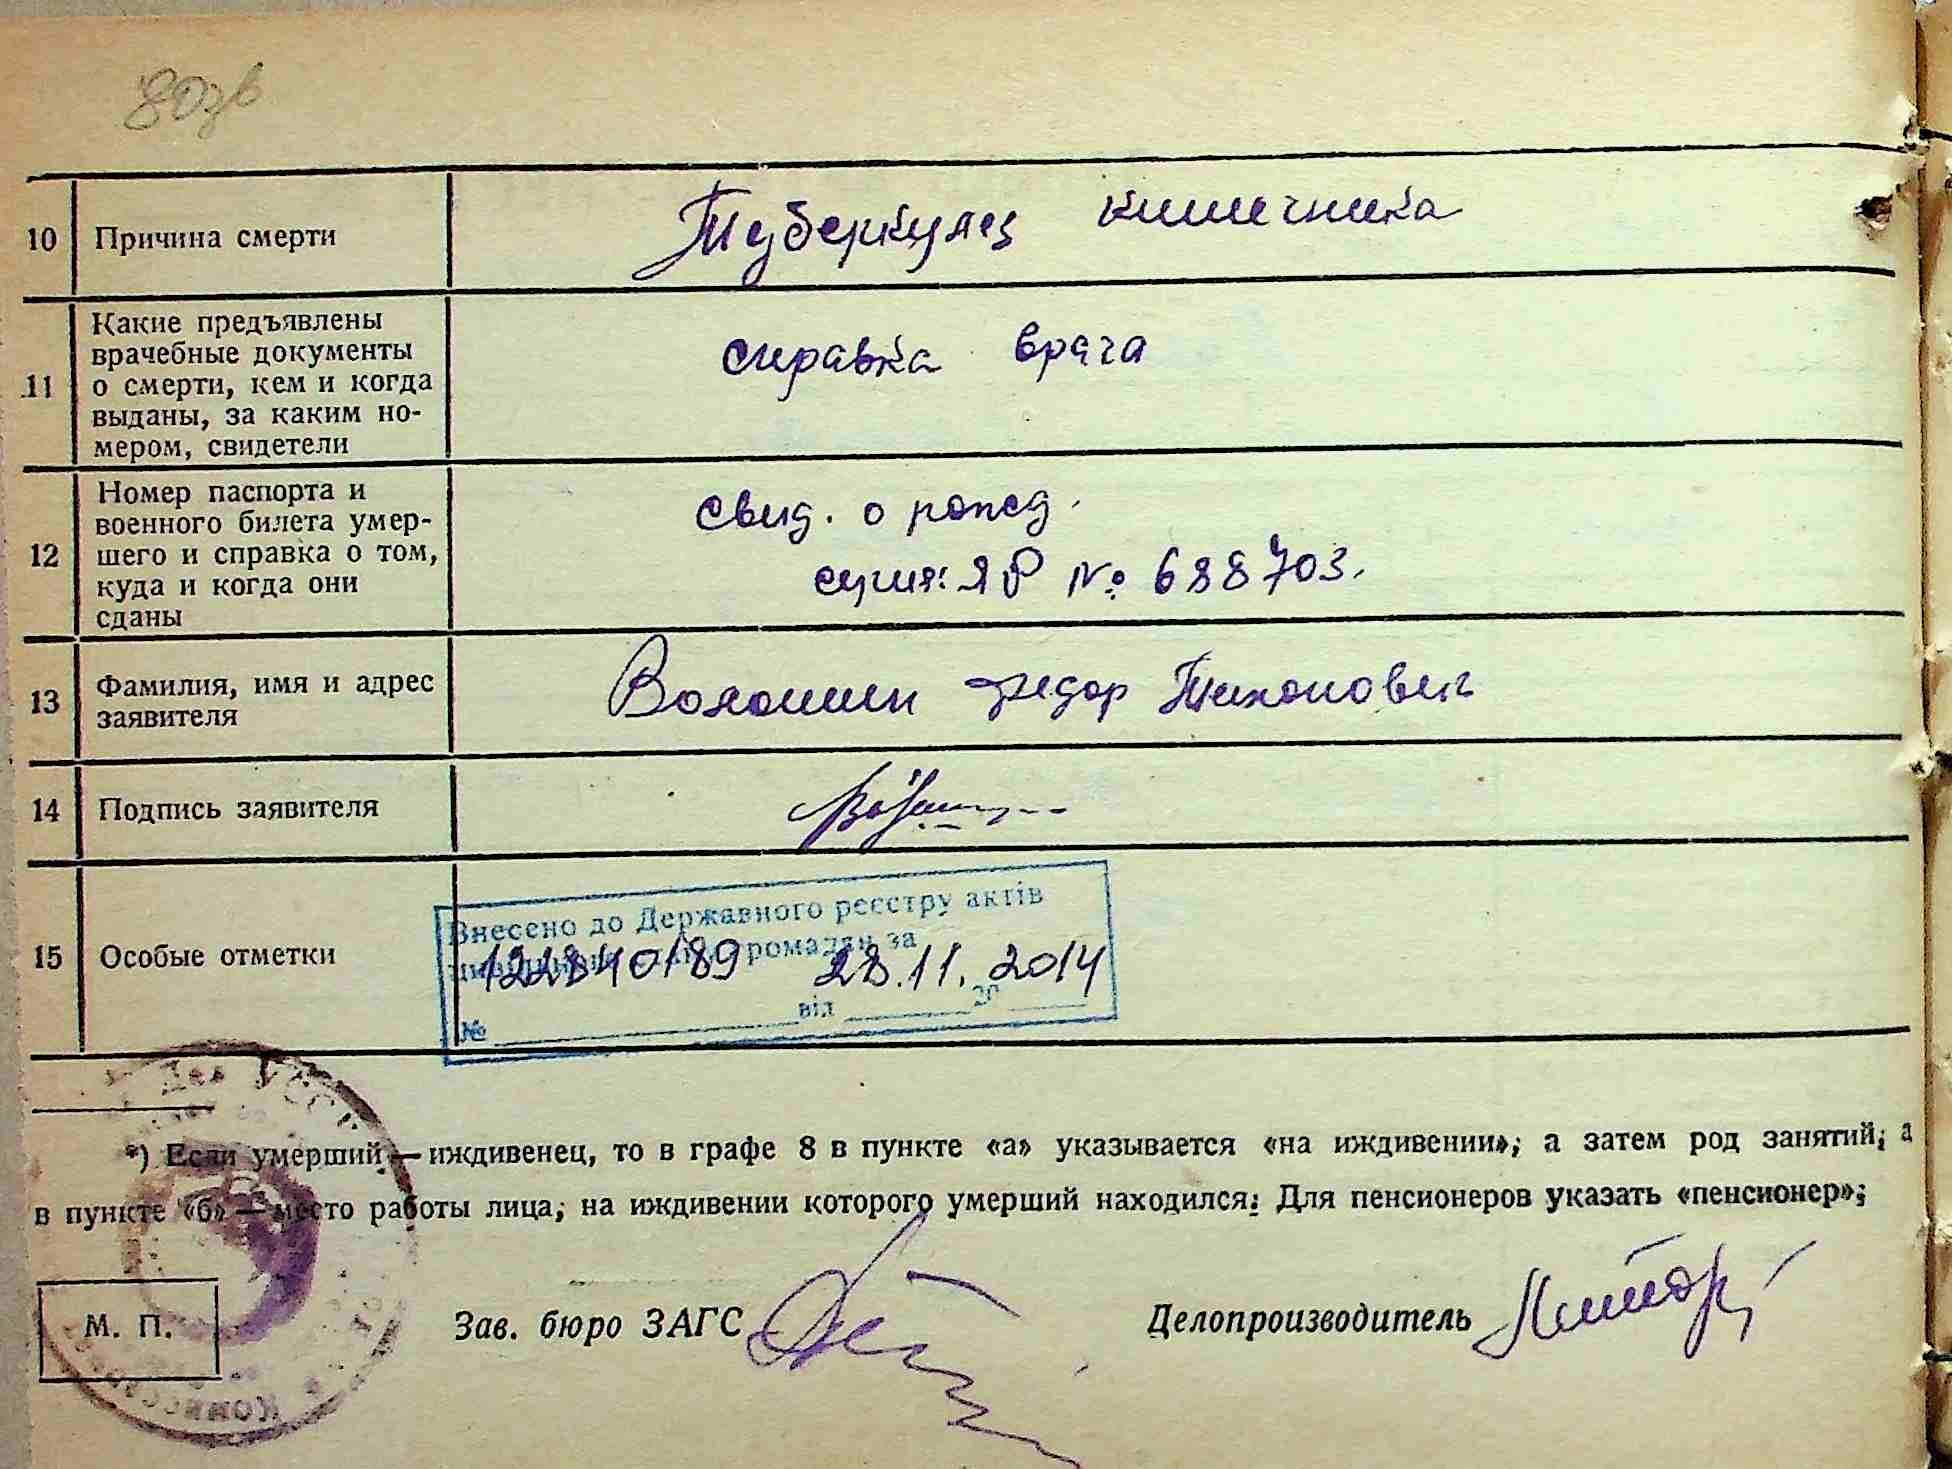 80зв
10 Причина смерти Туберкулез кишечника
11 Какие предъявлены
врачебные документы
о смерти, кем и когда
выданы, за каким но-
мером, свидетели
справка врача
12 Номер паспорта и
военного билета умер-
шего и справка о том,
куда и когда они
сданы
свид. о рожд.
серия: ЯР № 688703.
13 Фамилия, имя и адрес
заявителя
Волошин Федор Тихонович
14 Подпись заявителя
15 Особые отметки
Внесено до Державного реєстру актів
громадян за
122840189 28.11.2014
№ від 20
*) Если умерший — иждивенец, то в графе 8 в пункте «а» указывается «на иждивении», а затем род занятий, а
в пункте «б» — место работы лица, на иждивении которого умерший находился. Для пенсионеров указать «пенсионер»;
М. П.
Зав. бюро ЗАГС
Делопроизводитель
УССР